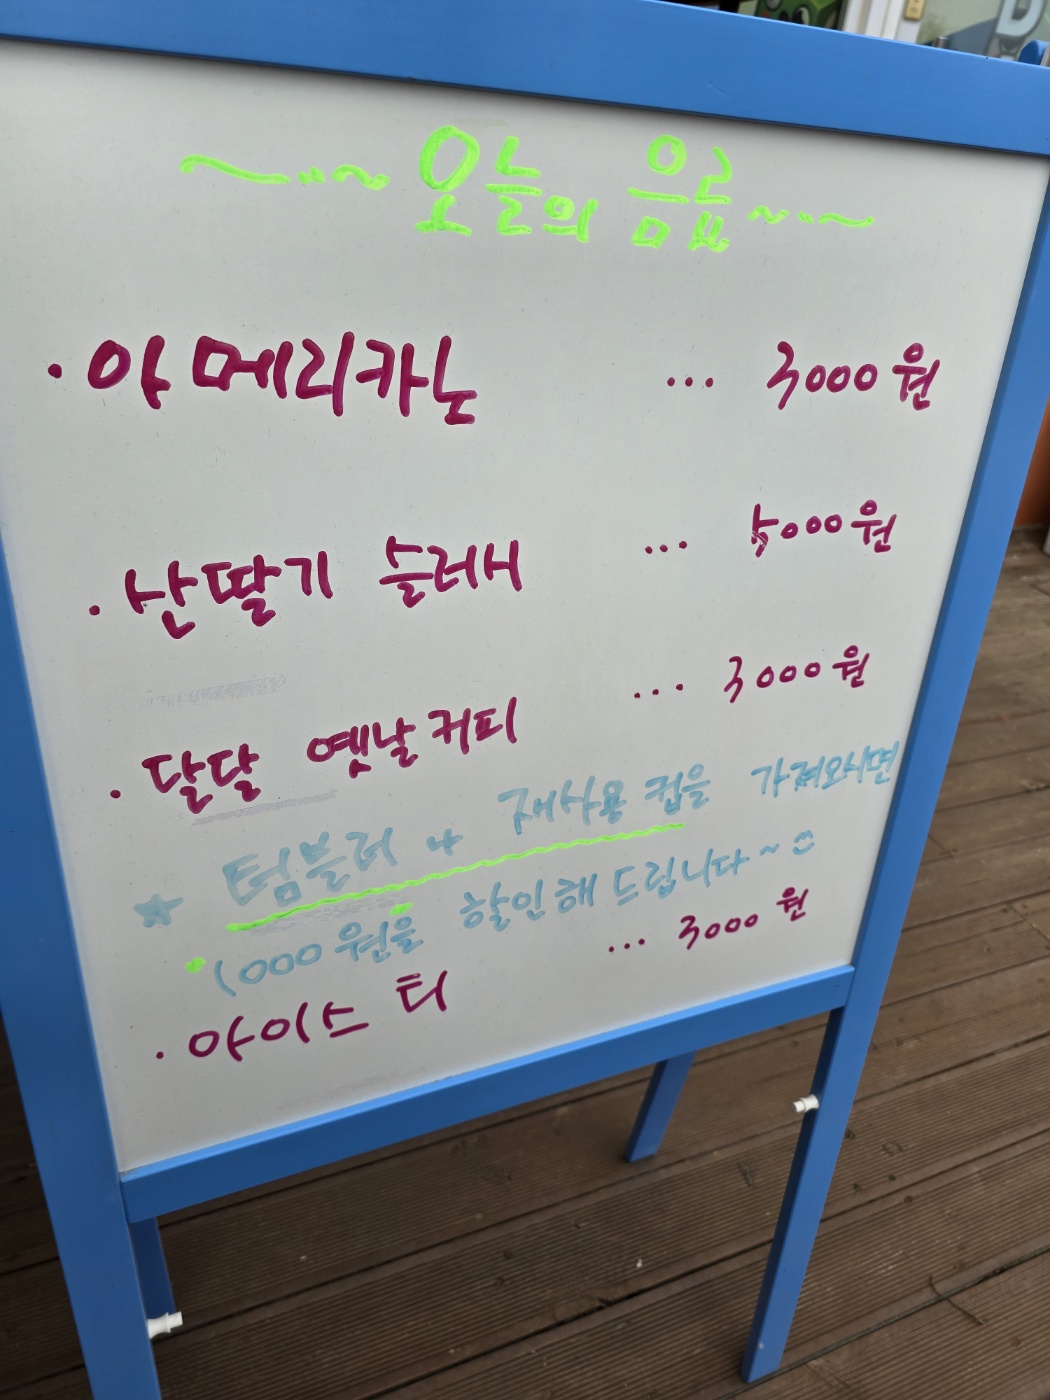 ~..~ 오늘의 음료 ~.~
· 아메리카노 ... 3000원
· 산딸기 슬러시 ... 5000원
· 달달 옛날커피 ... 3000원
★ 텀블러나 재사용 컵을 가져오시면
1000원을 할인해 드립니다~
· 아이스티 ... 3000원